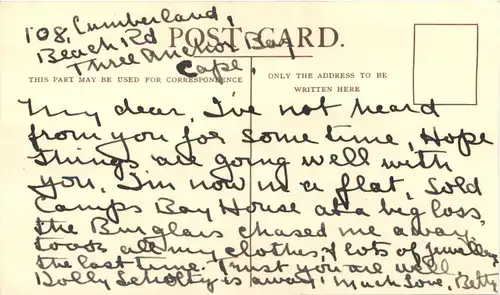 108, Cumberland,
Beach Rd
POST CARD.
Three Anchor Bay
Cape,
THIS PART MAY BE USED FOR CORRESPONDENCE
ONLY THE ADDRESS TO BE
WRITTEN HERE
My dear, I've not heard
from you for some time, Hope
things are going well with
you, I'm now in a flat, sold
Camps Bay House at a big loss,
the Burglars chased me away
took all my clothes, & lots of jewellery
the last time. Trust you are well,
Dolly is away! Much Love, Betty